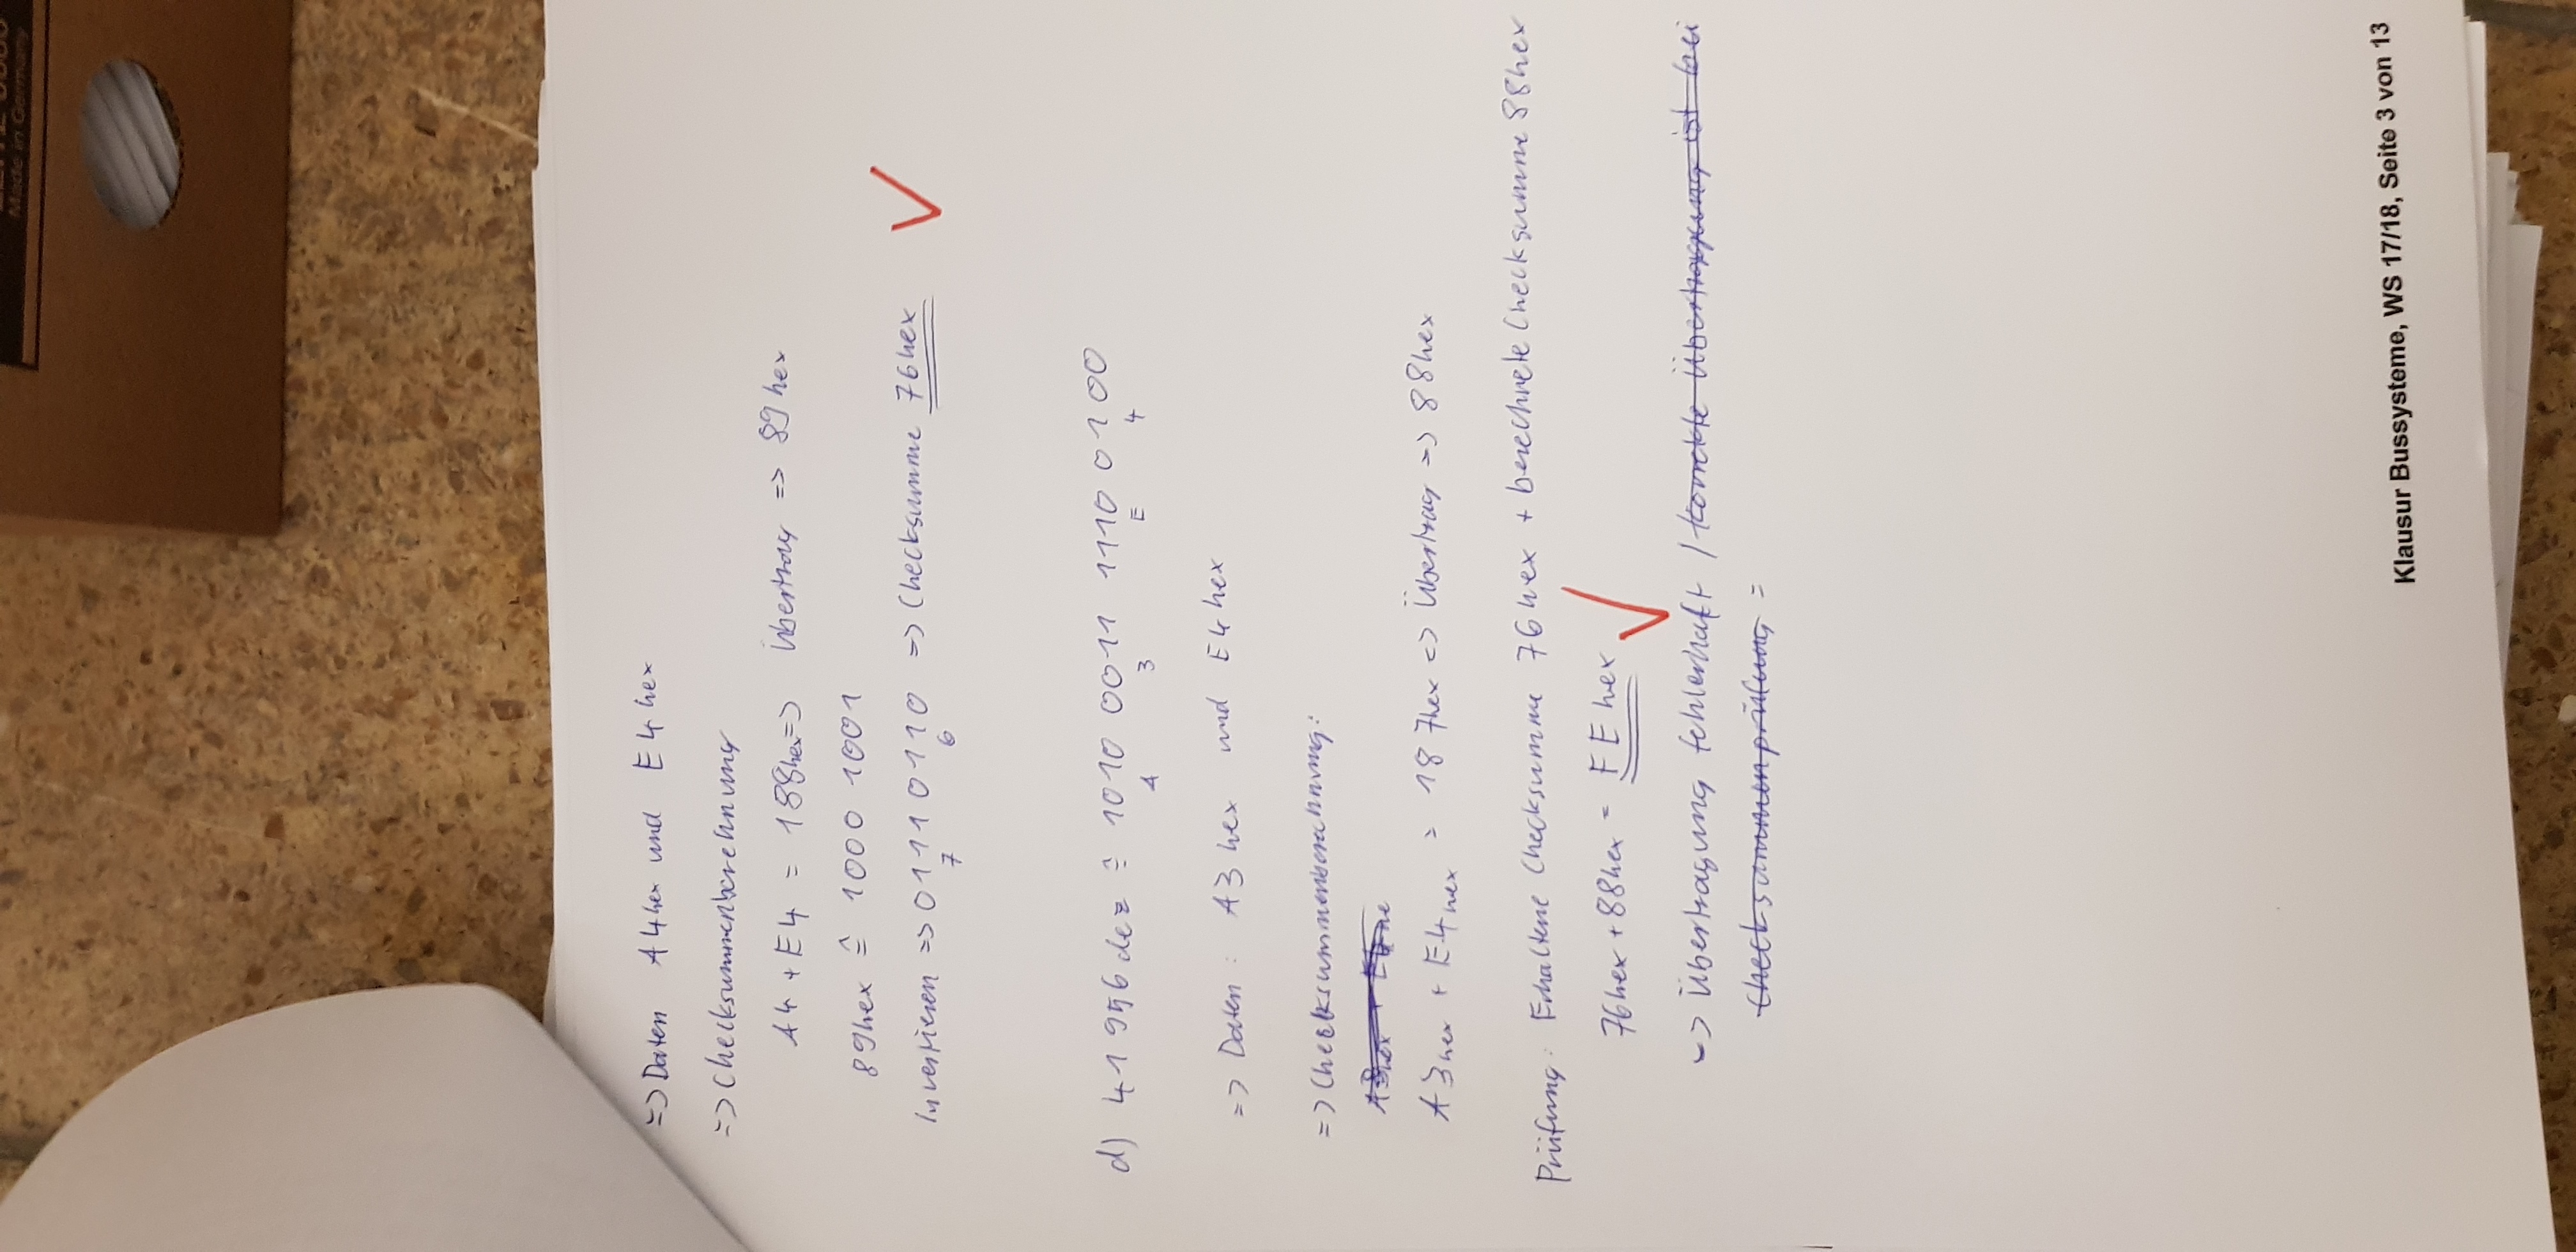 Made in Germany
=> Daten A4hex und E4hex
=> Checksummenberechnung
A4 + E4 = 188hex => Übertrag => 89hex
89hex ≙ 1000 1001
Invertieren => 01110110 => Checksumme 76hex
7 6
d) 41956dez ≙ 1010 0011 1110 0100
A 3 E 4
=> Daten: A3hex und E4hex
=> Checksummenberechnung:
A3hex + E4hex = 187hex => Übertrag => 88hex
Prüfung: Erhaltene Checksumme 76hex + berechnete Checksumme 88hex
76hex + 88hex = FEhex
-> Übertragung fehlerhaft / korrekte Übertragung ist bei
Checksummenprüfung =
Klausur Bussysteme, WS 17/18, Seite 3 von 13